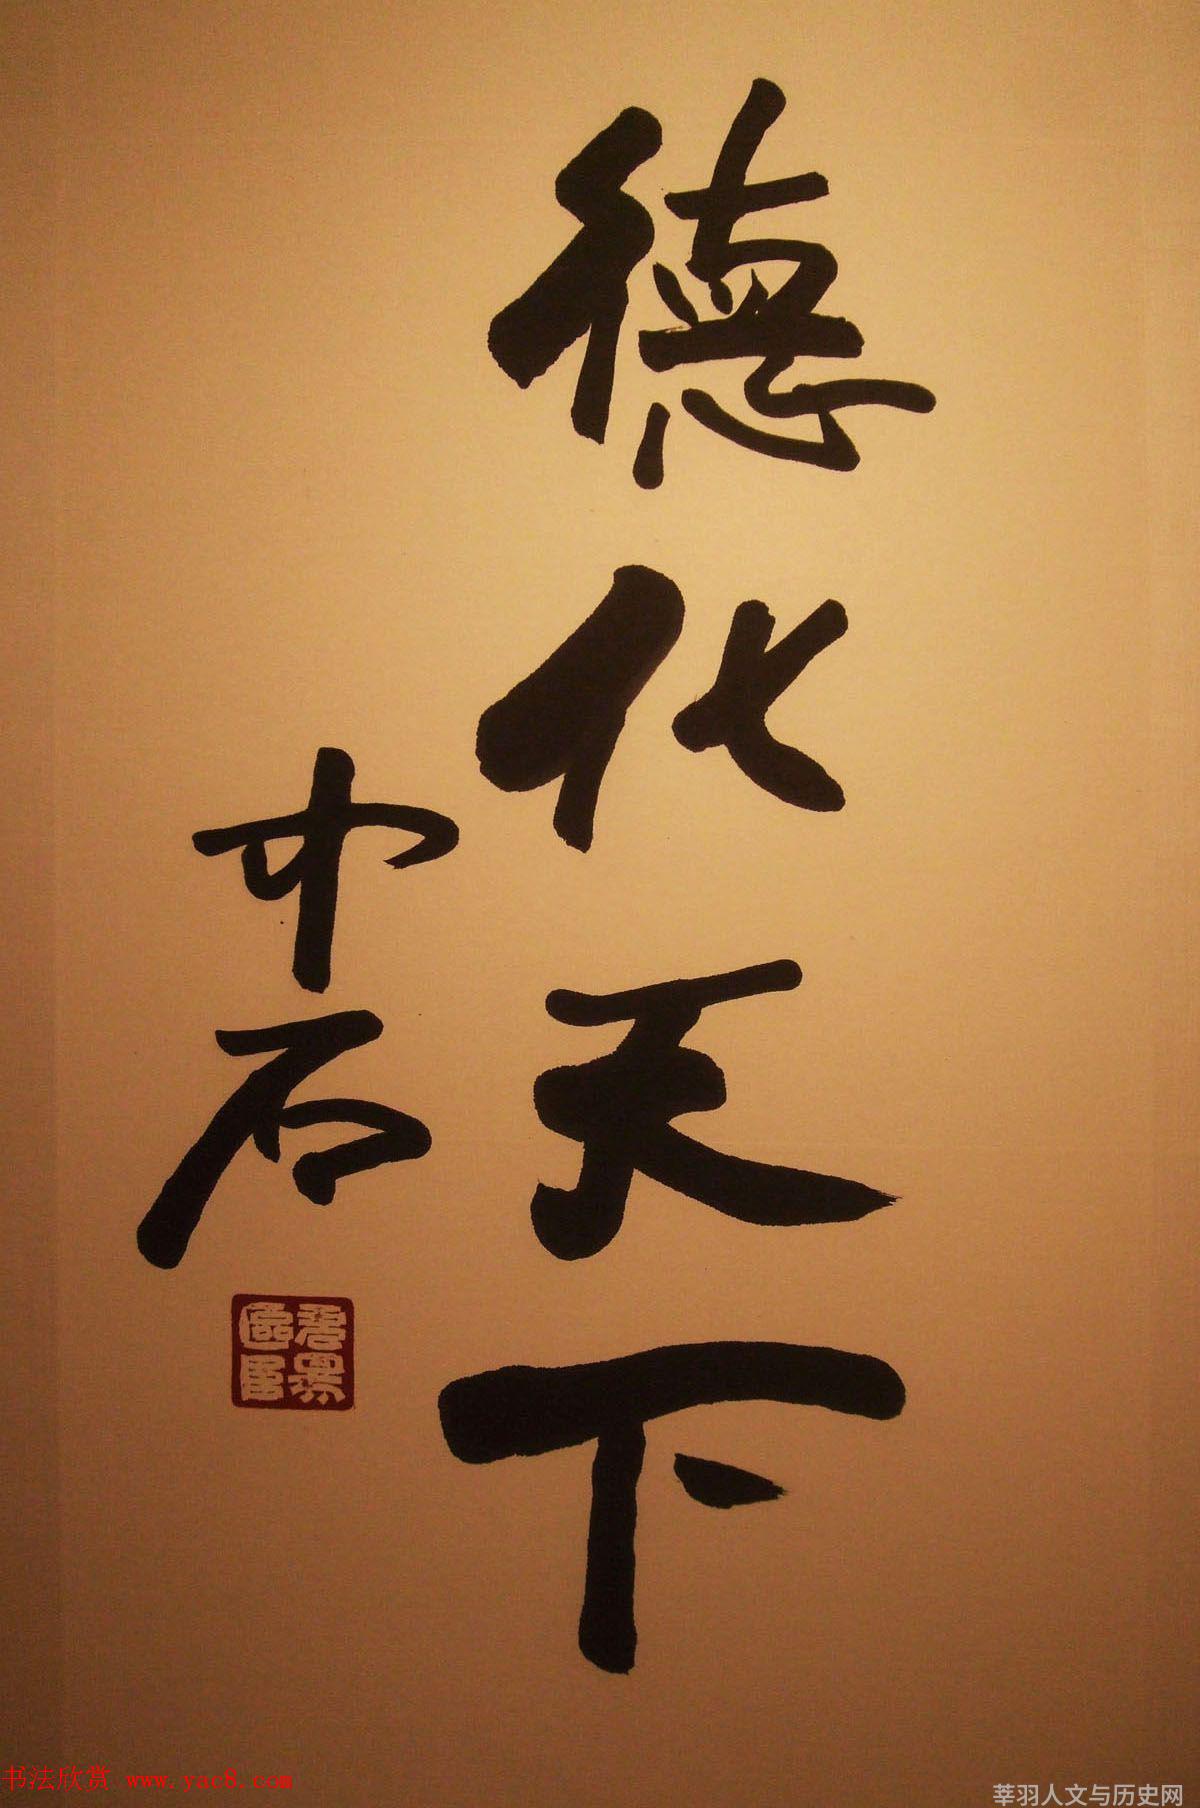 德化天下
中石
书法欣赏 www.yac8.com
莘羽人文与历史网